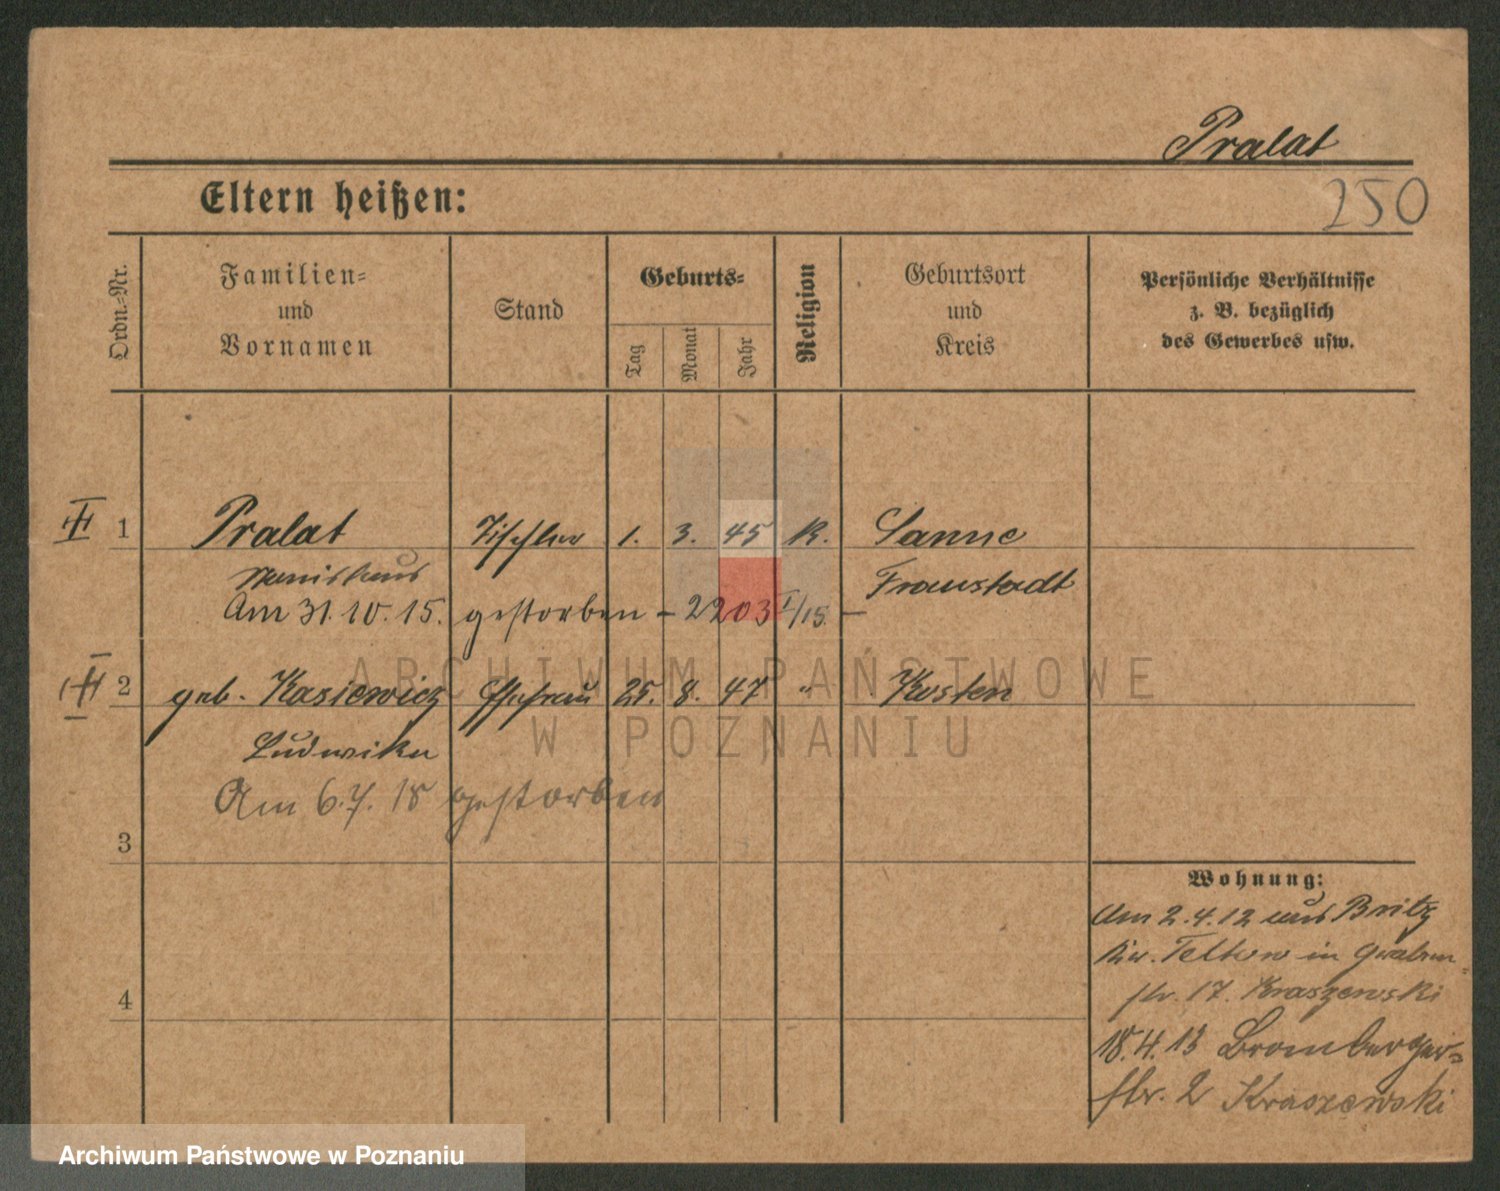 Pralat
Eltern heißen:
250
Ordn.-Nr.
Familien-
und
Vornamen
Stand
Geburts-
Tag
Monat
Jahr
Religion
Geburtsort
und
Kreis
Persönliche Verhältnisse
z. B. bezüglich
des Gewerbes usw.
1 Pralat Tischler 1. 3. 45 K. Sanne
Stanislaus Fraustadt
Am 31.10.15. gestorben - 2203 I/15. -
2 geb. Kasiewicz Ehefrau 25. 8. 47 " Kosten
Ludwika
Am 6.7.18 gestorben
3
4
Wohnung:
Am 2.4.12 aus Britz
Kr. Teltow in Graben-
str. 17. Kraszewski
18.4.13 Bromberger-
str. 2 Kraszewski
ARCHIWUM PAŃSTWOWE
W POZNANIU
Archiwum Państwowe w Poznaniu